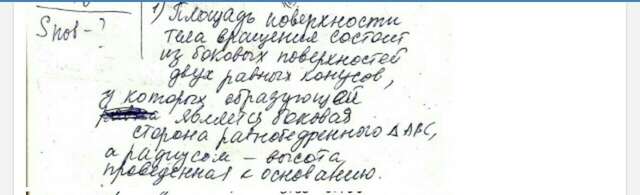 Sпов-?
1) Площадь поверхности
тела вращения состоит
из боковых поверхностей
двух равных конусов,
у которых образующей
является боковая
сторона равнобедренного ΔABC,
а радиусом – высота,
проведенная к основанию.